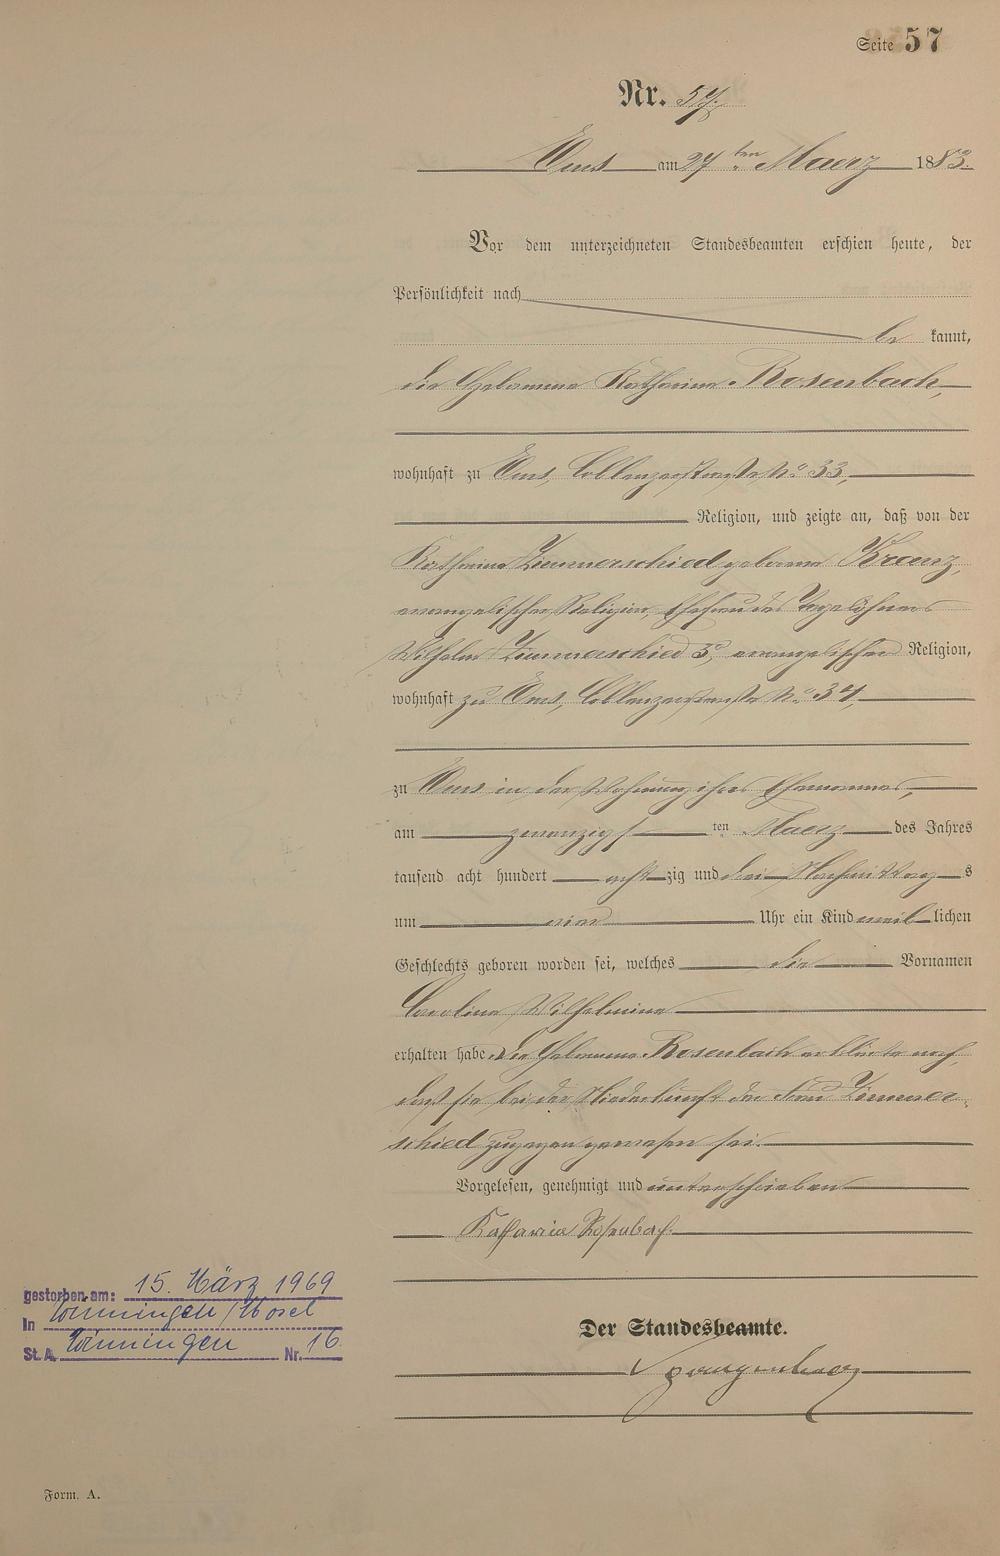 Seite 57
Nr. 57.
Ems am 27ten Maerz 1883.
Vor dem unterzeichneten Standesbeamten erschien heute, der
Persönlichkeit nach
be kannt,
die Hebamme Katharina Rosenbach,
wohnhaft zu Ems, Coblenzerstraße No 33,
Religion, und zeigte an, daß von der
Katharina Zimmerschied geborene Kranz,
evangelischer Religion, Ehefrau des Tagelöhners
Wilhelm Zimmerschied 5r, evangelischer Religion,
wohnhaft zu Ems, Coblenzerstraße No 34,
zu Ems in der Wohnung ihres Ehemannes,
am zwanzigsten Maerz des Jahres
tausend acht hundert achtzig und drei Nachmittags
um vier Uhr ein Kind weiblichen
Geschlechts geboren worden sei, welches die Vornamen
Carolina Wilhelmina
erhalten habe. Die Hebamme Rosenbach erklärte noch,
daß sie bei der Niederkunft der Frau Zimmer-
schied zugegen gewesen sei.
Vorgelesen, genehmigt und unterschrieben
Katharina Rosenbach
gestorben am: 15. März 1969
In Winningen/Mosel
St. A. Winningen Nr. 16
Der Standesbeamte.
Spangenberg
Form. A.